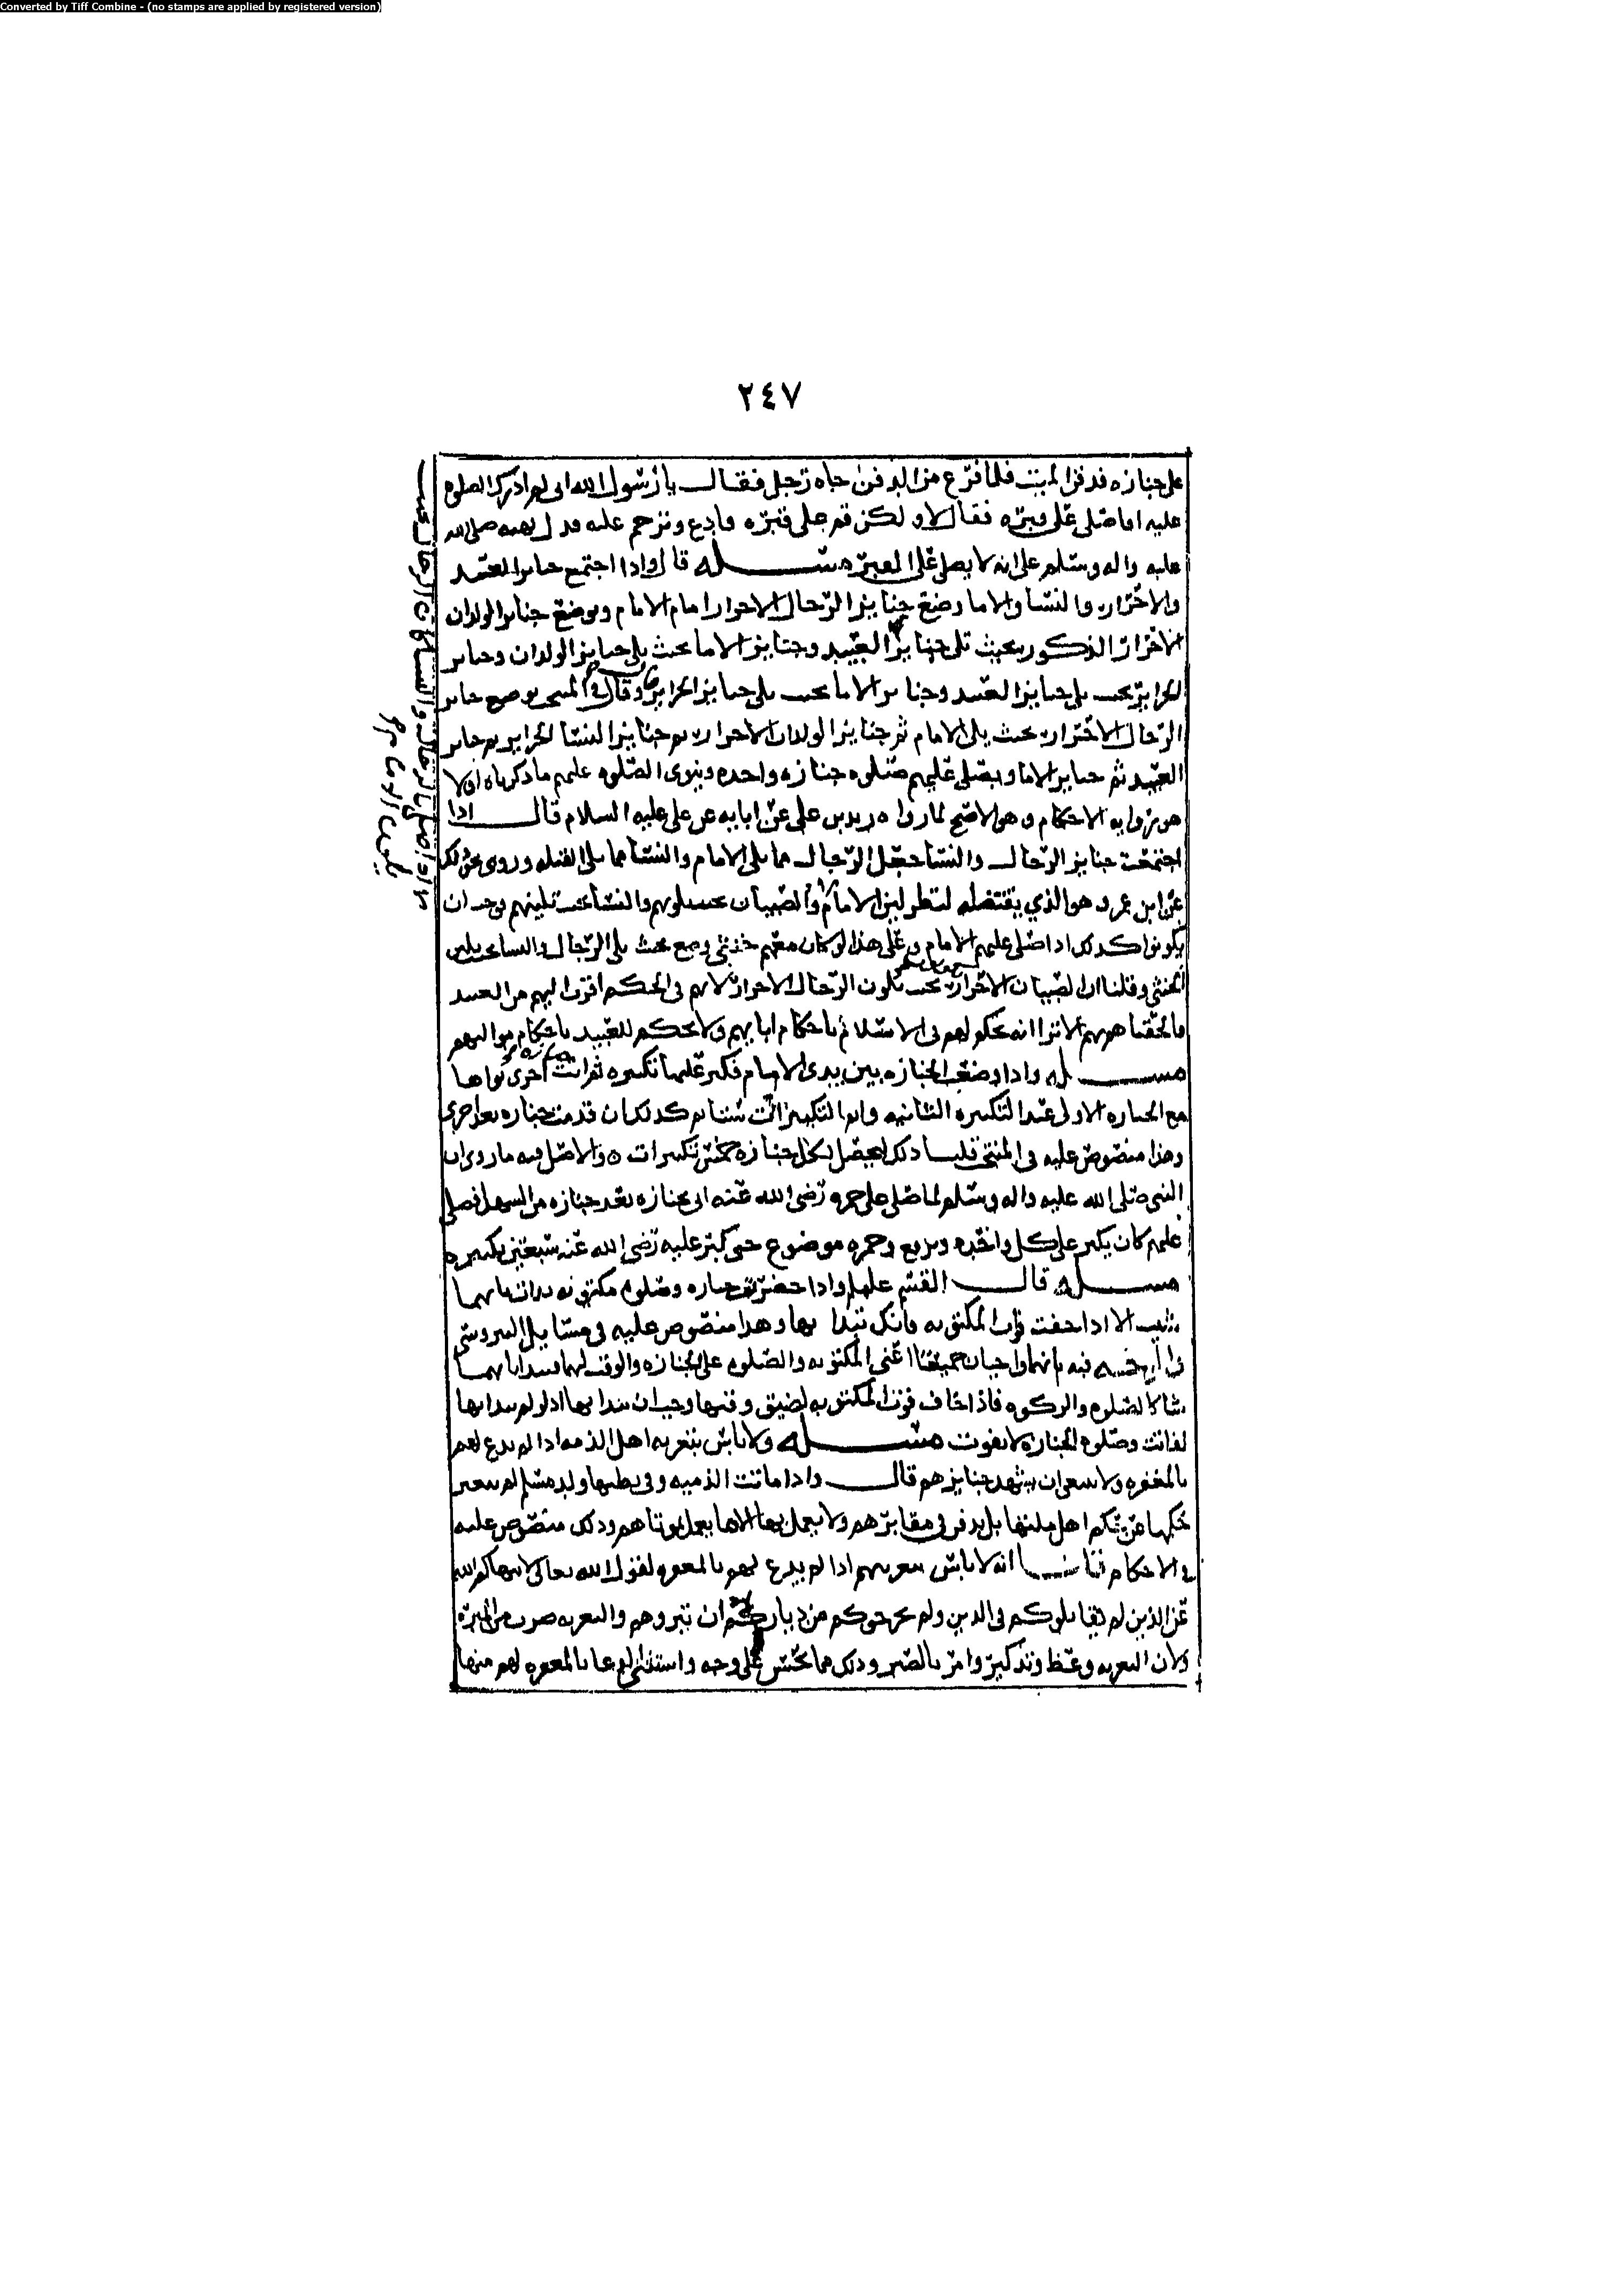 Converted by Tiff Combine - (no stamps are applied by registered version)
٢٤٧
على جنازه فدفن الميت فلما فرغ من الدفن جاه رجل فقال يا رسول الله انى لم ادرك الصلوه
عليه افاصلى على قبره فقال لا ولكن قم على قبره فادع وترحم عليه فدل نهيه صلى الله
عليه واله وسلم على انه لا يصلى على المقبره مسله قال واذا اجتمع جنايز العبيد
والاحرار والنسا والاما وضع جنايز الرجال الاحرار امام الامام ويوضع جنايز الولدان
الاحرار الذكور بحيث تلى جنايز العبيد وجنايز الاما بحيث يلى جنايز الولدان وجنايز
الحراير بحيث يلى جنايز العبيد وجنايز الاما بحيث يلى جنايز الحراير وقال فى المنتخب يوضع جنايز
الرجال الاحرار بحيث يلى الامام ثم جنايز الولدان الاحرار ثم جنايز النسا الحراير ثم جنايز
العبيد ثم جنايز الاما ويصلى عليهم صلوه جنازه واحده وينوى الصلوه عليهم ما ذكرناه اولا
هو روايه الاحكام وهو الاصح لما رواه زيد بن على عن ابايه عن على عليه السلام قال اذا
اجتمعت جنايز الرجال والنسا جعل الرجال مما يلى الامام والنسا مما يلى القبله وروى نحو ذلك
عن ابن عمر وهو الذي يقتضيه لترتيب الامام والصبيان يلونهم والنسا تلينهم فوجب ان
يكونوا كذلك اذا صلى عليهم الامام وعلى هذا لو كان معهم خنثى وضع بحيث يلى الرجال والنسا بحيث يلين
الخنثى وقلنا ان الصبيان الاحرار بحيث يلون الرجال الاحرار لانهم فى الحكم اقرب اليهم من العبيد
فالحقناهم بهم الا ترا انه يحكم لهم فى الاسلام باحكام ابايهم ولا يحكم للعبيد باحكام مواليهم
مسله واذا وضعت الجنازه بين يدى الامام فكبر عليها تكبيره ثم اتت اخرى نواها
مع الجنازه الاولى عند التكبيره الثانيه واتم التكبيرات ستا ثم كذلك ان قدمت جنازه بعد اخرى
وهذا منصوص عليه فى المنتخب قلنا ذلك ليحصل لكل جنازه خمس تكبيرات ه والاصل فيه ما روى ان
النبى صلى الله عليه واله وسلم لما صلى على حمزه رضى الله عنه اتى بجنازه بعد جنازه من الشهدا فصلى
عليهم كان يكبر على كل واحده وترفع وحمزه موضوع حتى كبر عليه رضى الله عنه سبعين تكبيره
مسله قال القسم عليه السلام واذا حضرت جنازه وصلوه مكتوبه بدات بايهما
شيت الا اذا خفت فوات المكتوبه فانك تبدا بها وهذا منصوص عليه فى مسايل النيروسى
فانهما واجبان جميعا اعنى المكتوبه والصلوه على الجنازه والوقت لهما فيبدا بايهما
شا كالصلوه والزكوه فاذا خاف فوت المكتوبه لضيق وقتها وجب ان يبدا بها اذ لو لم يبدا بها
لفاتت وصلوه الجنازه لا تفوت مسله ولا باس بتعزيه اهل الذمه اذا لم يدع لهم
بالمغفره ولا ينبغى ان يشهد جنايزهم قال واذا ماتت الذميه وفى بطنها ولد مسلم لم يتغير
حكمها عن حكم اهل ملتها بل تدفن فى مقابرهم ولا يعمل بها الا ما يعمل بموتاهم وذلك منصوص عليه
فى الاحكام قلنا انه لا باس بتعزيتهم اذا لم يدع لهم بالمغفره لقول الله تعالى لا ينهاكم الله
عن الذين لم يقاتلوكم فى الدين ولم يخرجوكم من دياركم ان تبروهم والتعزيه ضرب من المبره
ولان التعزيه وعظ وتذكير وامر بالصبر وذلك مما يحسن على وجه واستثنى الدعا بالمغفره لهم منها